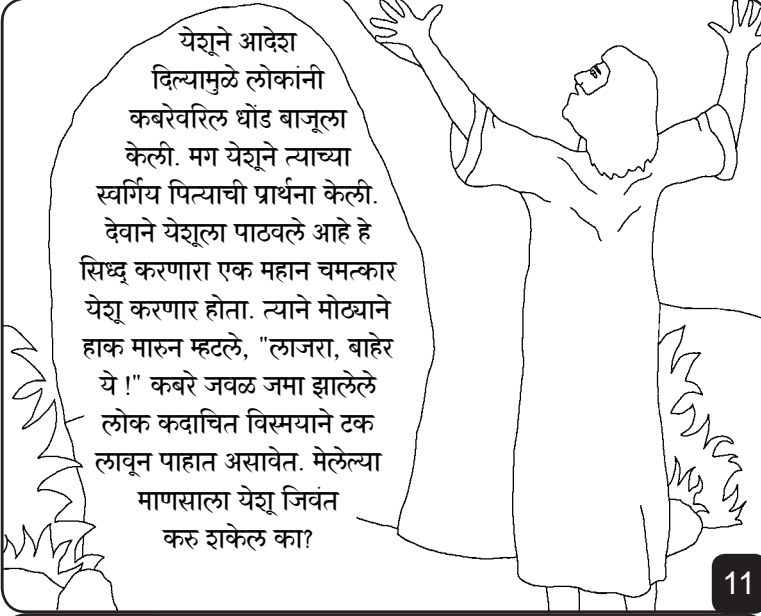 येशूने आदेश
दिल्यामुळे लोकांनी
कबरेवरिल धोंड बाजूला
केली. मग येशूने त्याच्या
स्वर्गिय पित्याची प्रार्थना केली.
देवाने येशूला पाठवले आहे हे
सिध्द् करणारा एक महान चमत्कार
येशू करणार होता. त्याने मोठ्याने
हाक मारुन म्हटले, "लाजरा, बाहेर
ये !" कबरे जवळ जमा झालेले
लोक कदाचित विस्मयाने टक
लावून पाहात असावेत. मेलेल्या
माणसाला येशू जिवंत
करु शकेल का?
11